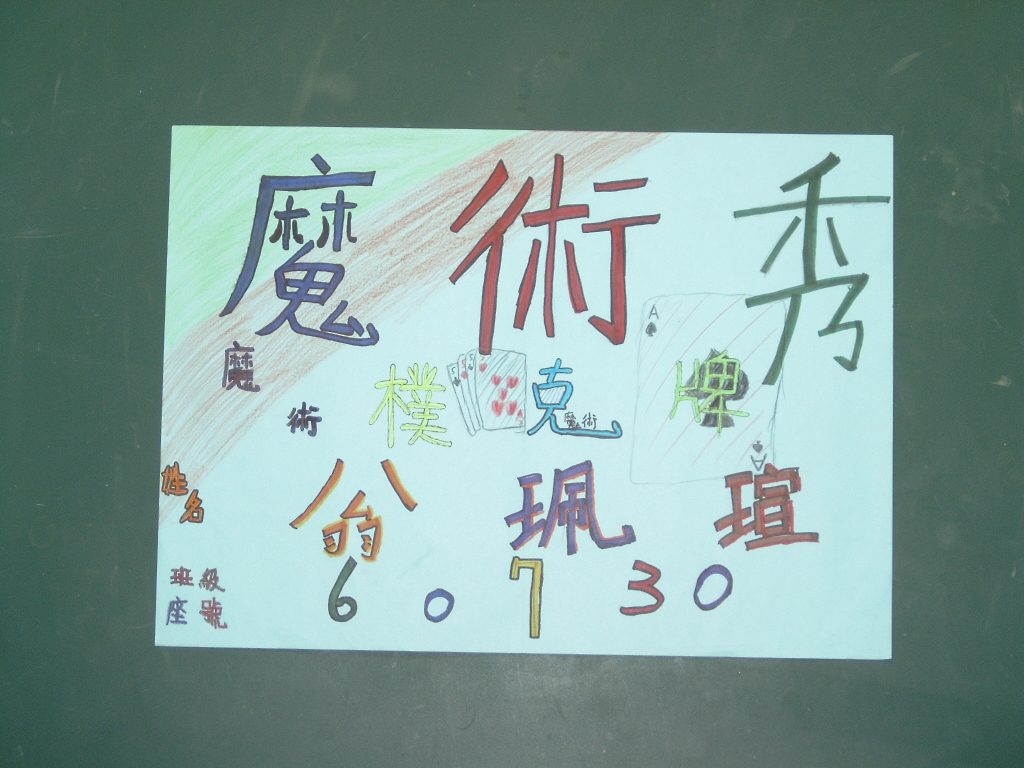 魔術秀
魔術
樸克牌
A
魔術
A
姓名
翁珮瑄
班級
座號
60730